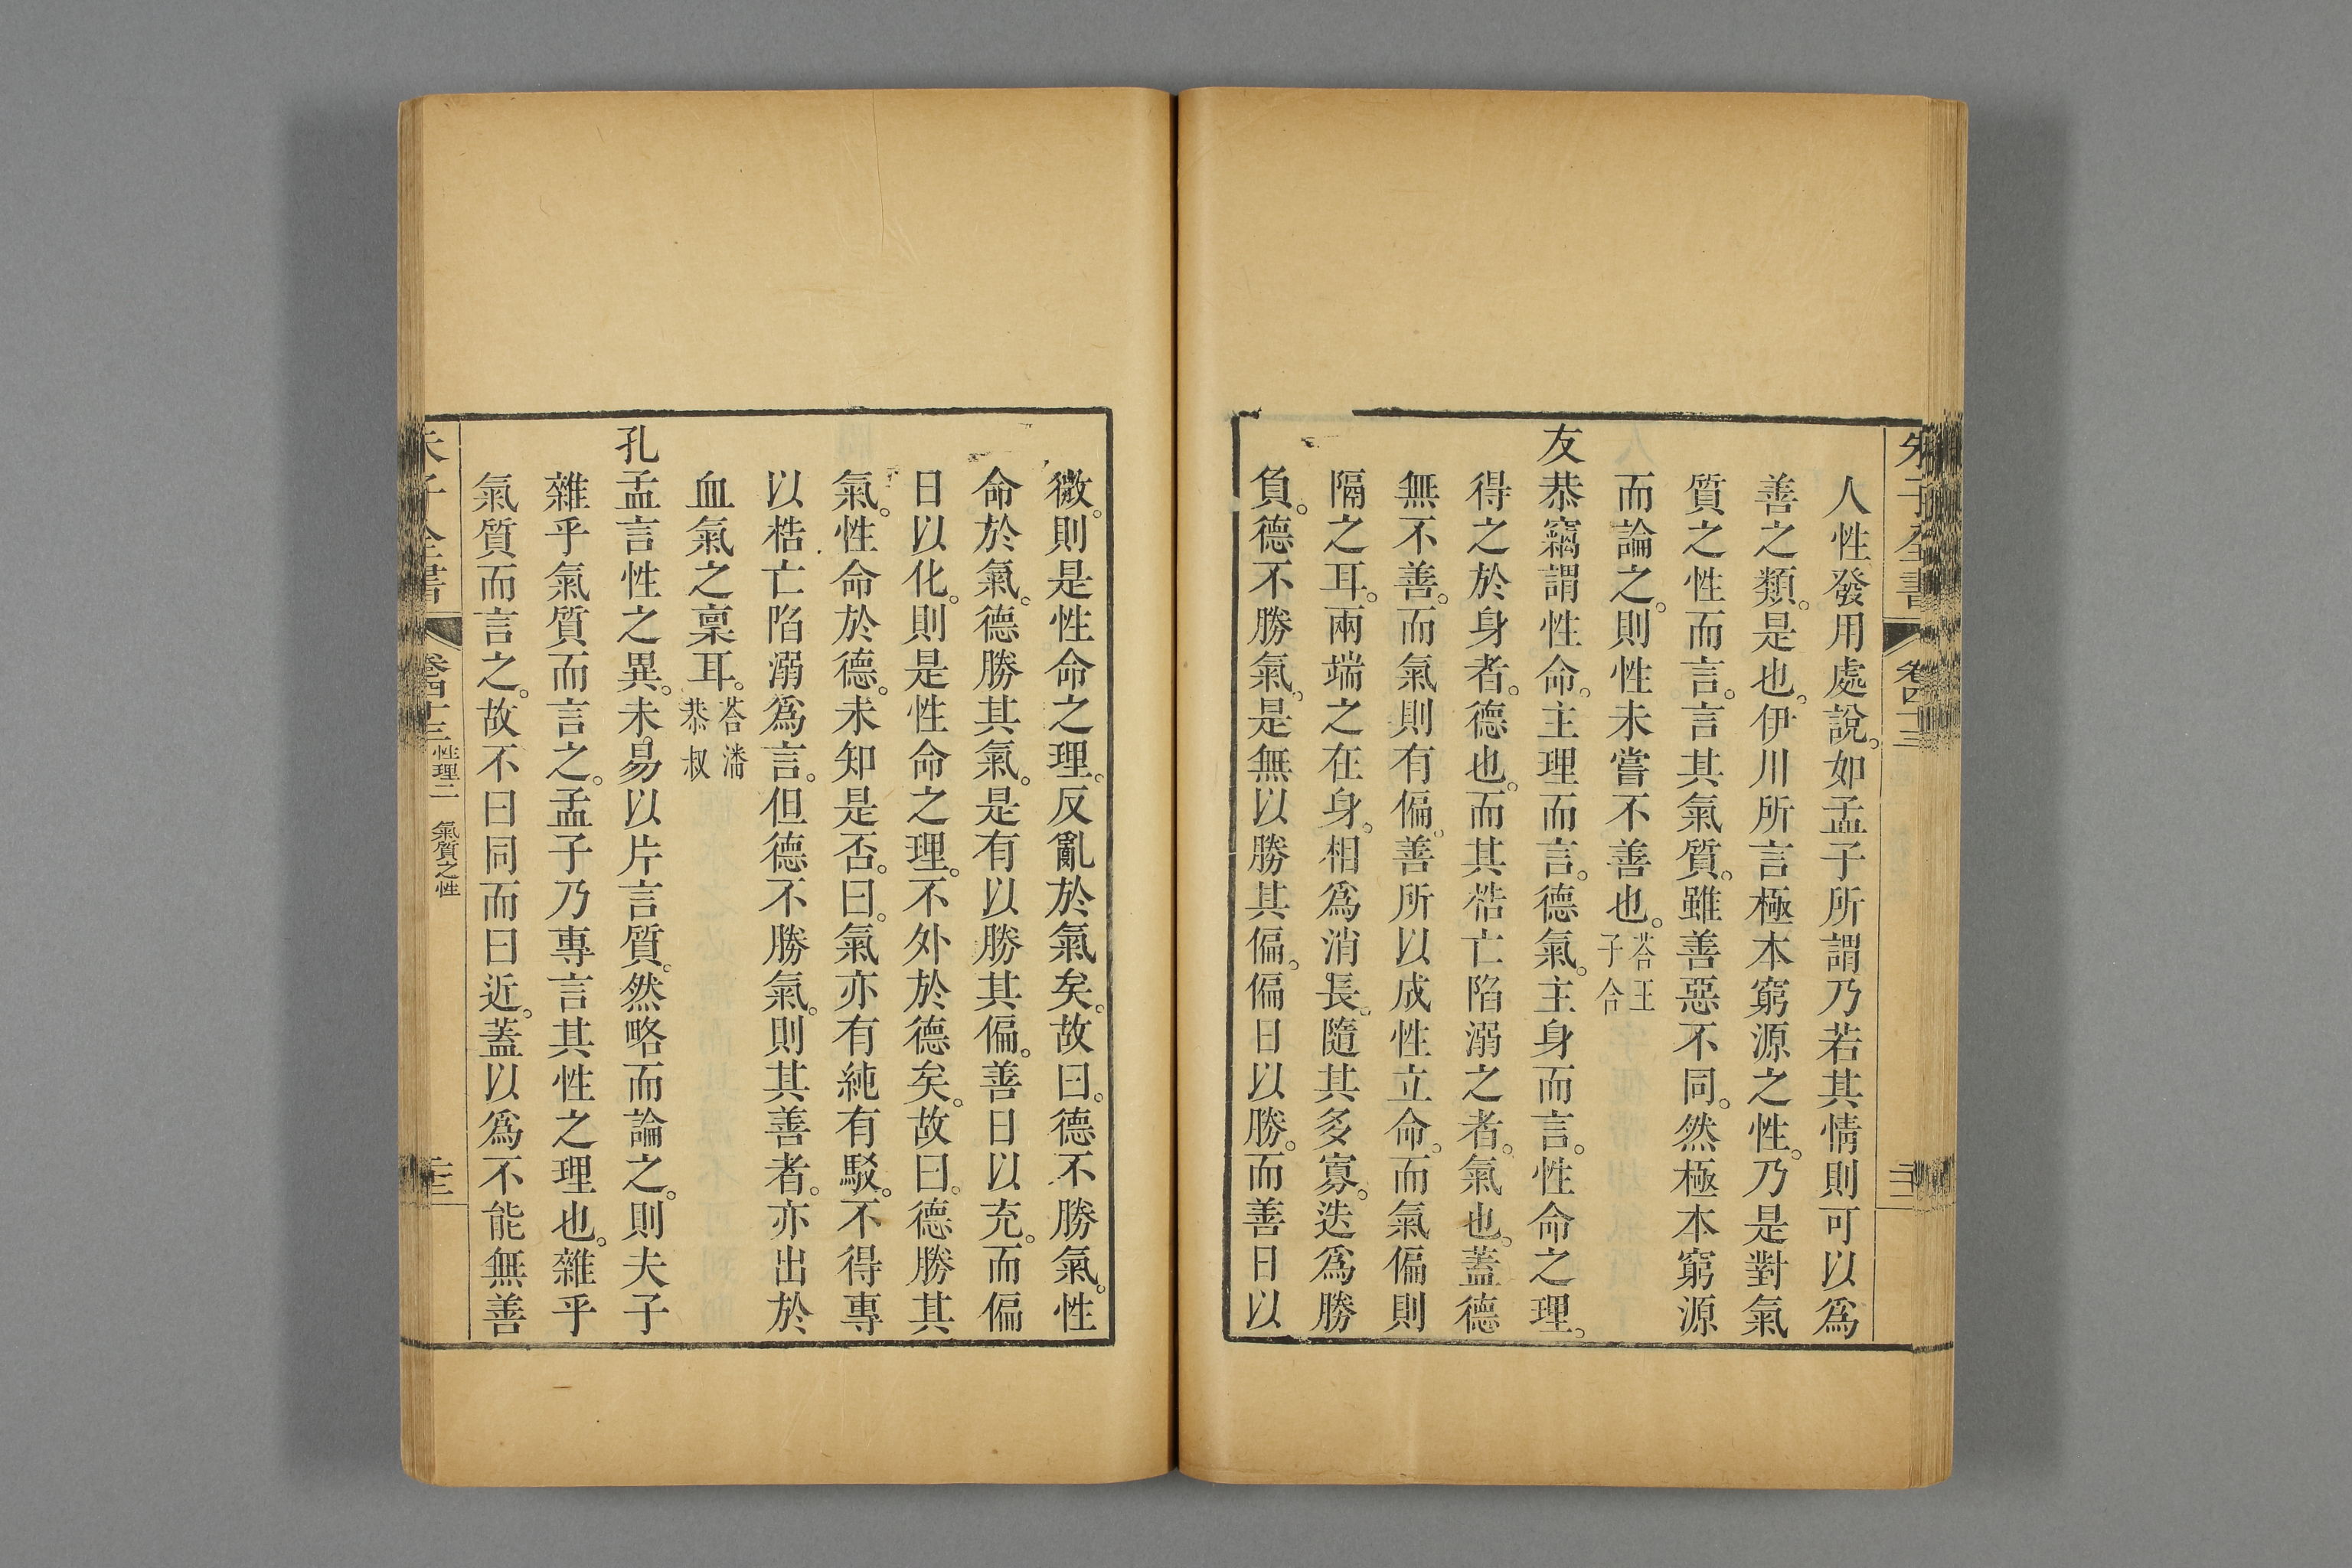 朱子全書 卷四十三
人性發用處說。如孟子所謂乃若其情則可以爲
善之類。是也。伊川所言極本窮源之性。乃是對氣
質之性而言。言其氣質。雖善惡不同。然極本窮源
而論之。則性未嘗不善也。答王子合
友恭竊謂性命。主理而言。德氣。主身而言。性命之理。
得之於身者。德也。而其梏亡陷溺之者。氣也。蓋德
無不善。而氣則有偏。善所以成性立命。而氣偏則
隔之耳。兩端之在身。相爲消長。隨其多寡。迭爲勝
負。德不勝氣。是無以勝其偏。偏日以勝。而善日以
微。則是性命之理。反亂於氣矣。故曰。德不勝氣。性
命於氣。德勝其氣。是有以勝其偏。善日以充。而偏
日以化。則是性命之理。不外於德矣。故曰。德勝其
氣。性命於德。未知是否。曰。氣亦有純有駁。不得專
以梏亡陷溺爲言。但德不勝氣。則其善者。亦出於
血氣之稟耳。答潘恭叔
孔孟言性之異。未易以片言質。然略而論之。則夫子
雜乎氣質而言之。孟子乃專言其性之理也。雜乎
氣質而言之。故不曰同而曰近。蓋以爲不能無善
朱子全書 卷四十三 性理二 氣質之性